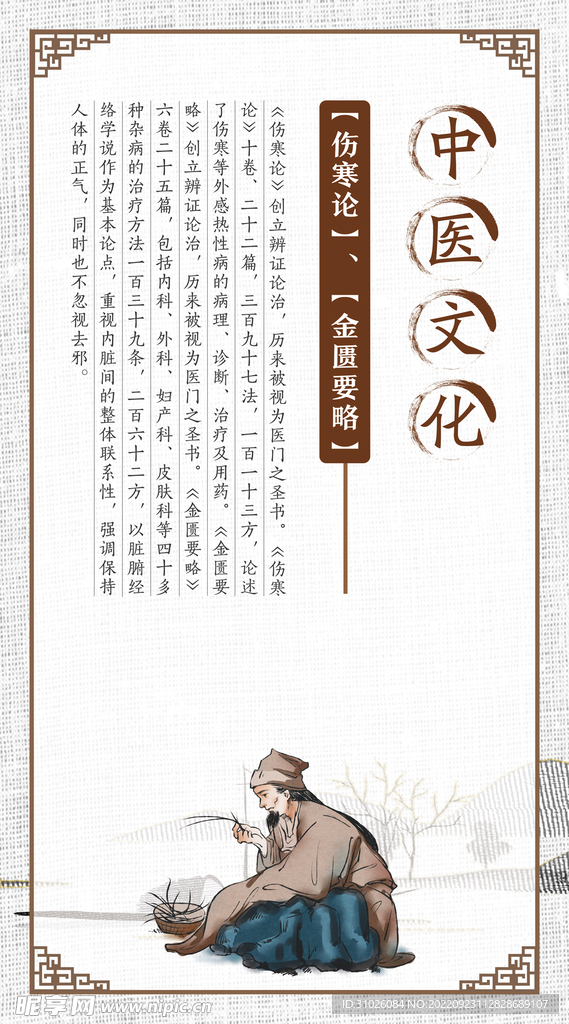 中医文化
【伤寒论】、【金匮要略】
《伤寒论》创立辨证论治，历来被视为医门之圣书。《伤寒
论》十卷、二十二篇，三百九十七法，一百一十三方，论述
了伤寒等外感热性病的病理、诊断、治疗及用药。《金匮要
略》创立辨证论治，历来被视为医门之圣书。《金匮要略》
六卷二十五篇，包括内科、外科、妇产科、皮肤科等四十多
种杂病的治疗方法一百三十九条，二百六十二方，以脏腑经
络学说作为基本论点，重视内脏间的整体联系性，强调保持
人体的正气，同时也不忽视去邪。
昵享网 www.nipic.cn
ID:31026084 NO:20220923112828689107